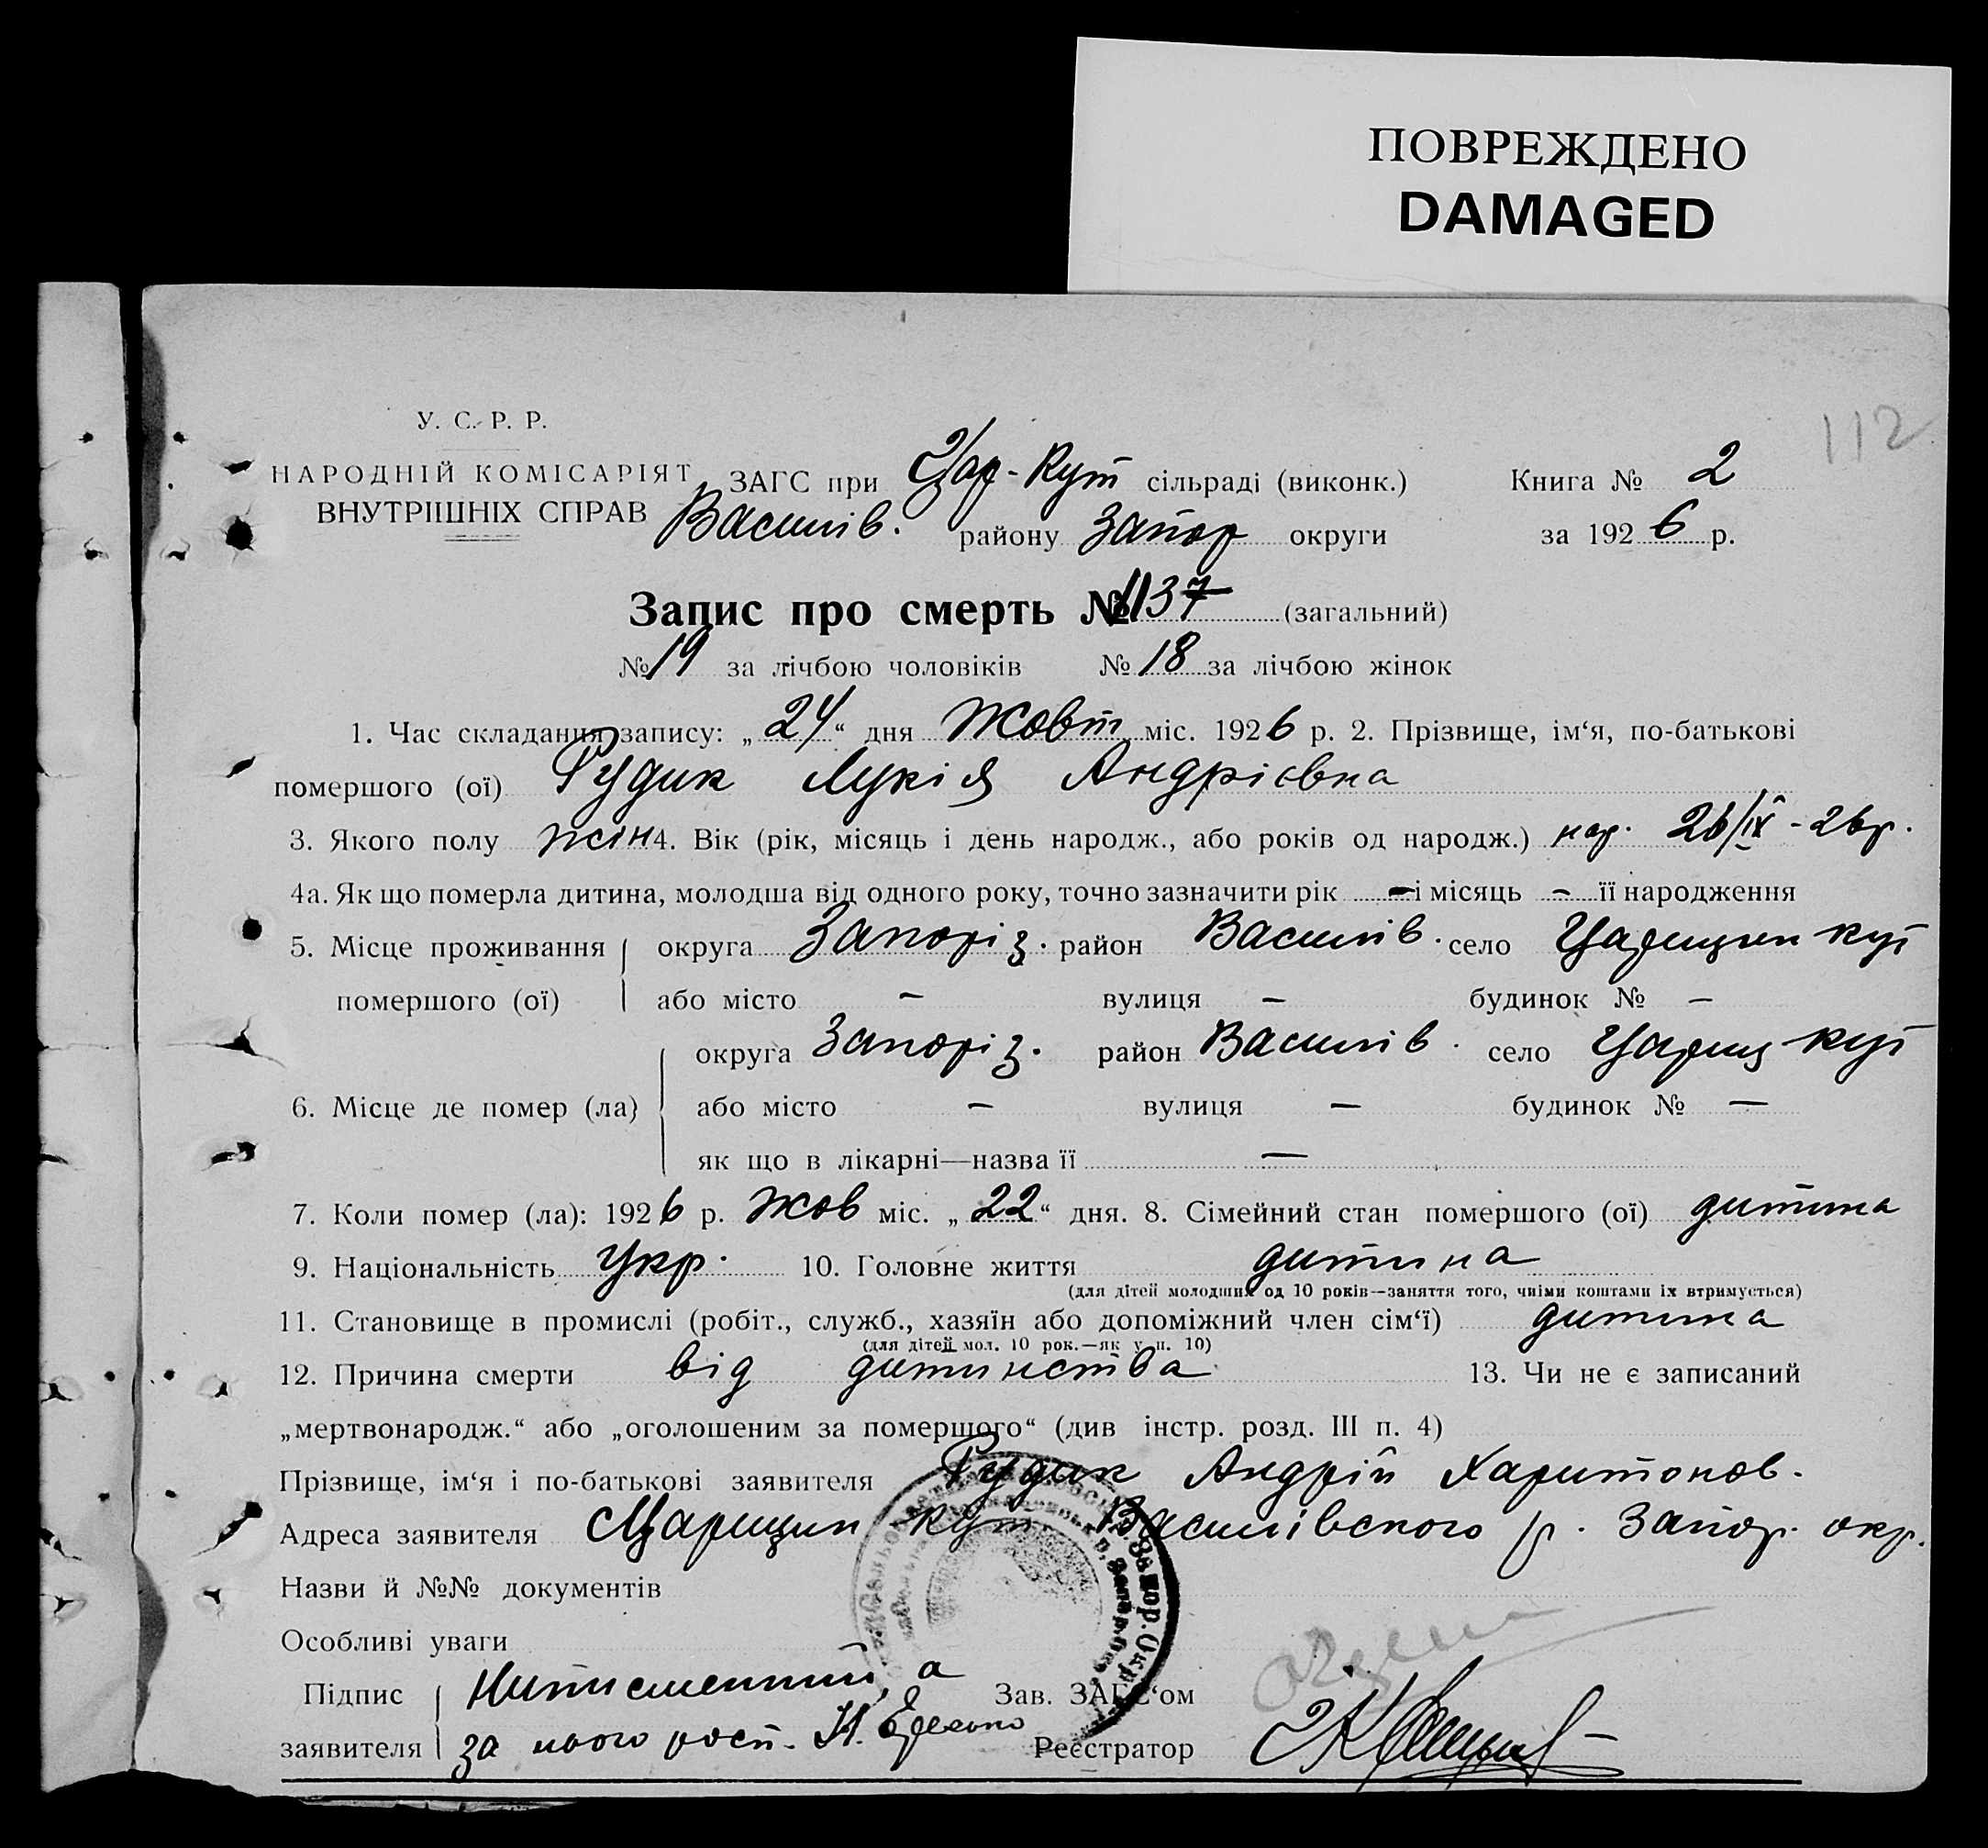 ПОВРЕЖДЕНО
DAMAGED
112
У. С. Р. Р.
НАРОДНІЙ КОМІСАРІЯТ ЗАГС при Цар-Кут сільраді (виконк.) Книга № 2
ВНУТРІШНІХ СПРАВ Василів. району Запор округи за 1926 р.
Запис про смерть № 137 (загальний)
№ 19 за лічбою чоловіків № 18 за лічбою жінок
1. Час складання запису: „24“ дня Жовт міс. 1926 р. 2. Прізвище, ім‘я, по-батькові
помершого (ої) Рудик Лукія Андріівна
3. Якого полу жін 4. Вік (рік, місяць і день народж., або років од народж.) нар. 26/IX - 26р.
4а. Як що померла дитина, молодша від одного року, точно зазначити рік — і місяць — її народження
5. Місце проживання округа Запоріз. район Василів. село Царицин кут
помершого (ої) або місто — вулиця — будинок № —
округа Запоріз. район Василів. село Цариц кут
6. Місце де помер (ла) або місто — вулиця — будинок № —
як що в лікарні—назва її —
7. Коли помер (ла): 1926 р. Жов міс. „22“ дня. 8. Сімейний стан помершого (ої) дитина
9. Національність Укр. 10. Головне життя дитина
(для дітей молодших од 10 років—заняття того, чиїми коштами їх втримується)
11. Становище в промислі (робіт., служб., хазяїн або допоміжний член сім‘ї) дитина
(для дітей мол. 10 рок.—як у п. 10)
12. Причина смерти від дитинства 13. Чи не є записаний
„мертвонародж.“ або „оголошеним за помершого“ (див інстр. розд. III п. 4)
Прізвище, ім‘я і по-батькові заявителя Рудик Андрій Харитонов.
Адреса заявителя Царицин кут Василівского р. Запор. окр.
Назви й №№ документів
Особливі уваги
Підпис а Зав. ЗАГС‘ом
заявителя за нього росп. Реєстратор